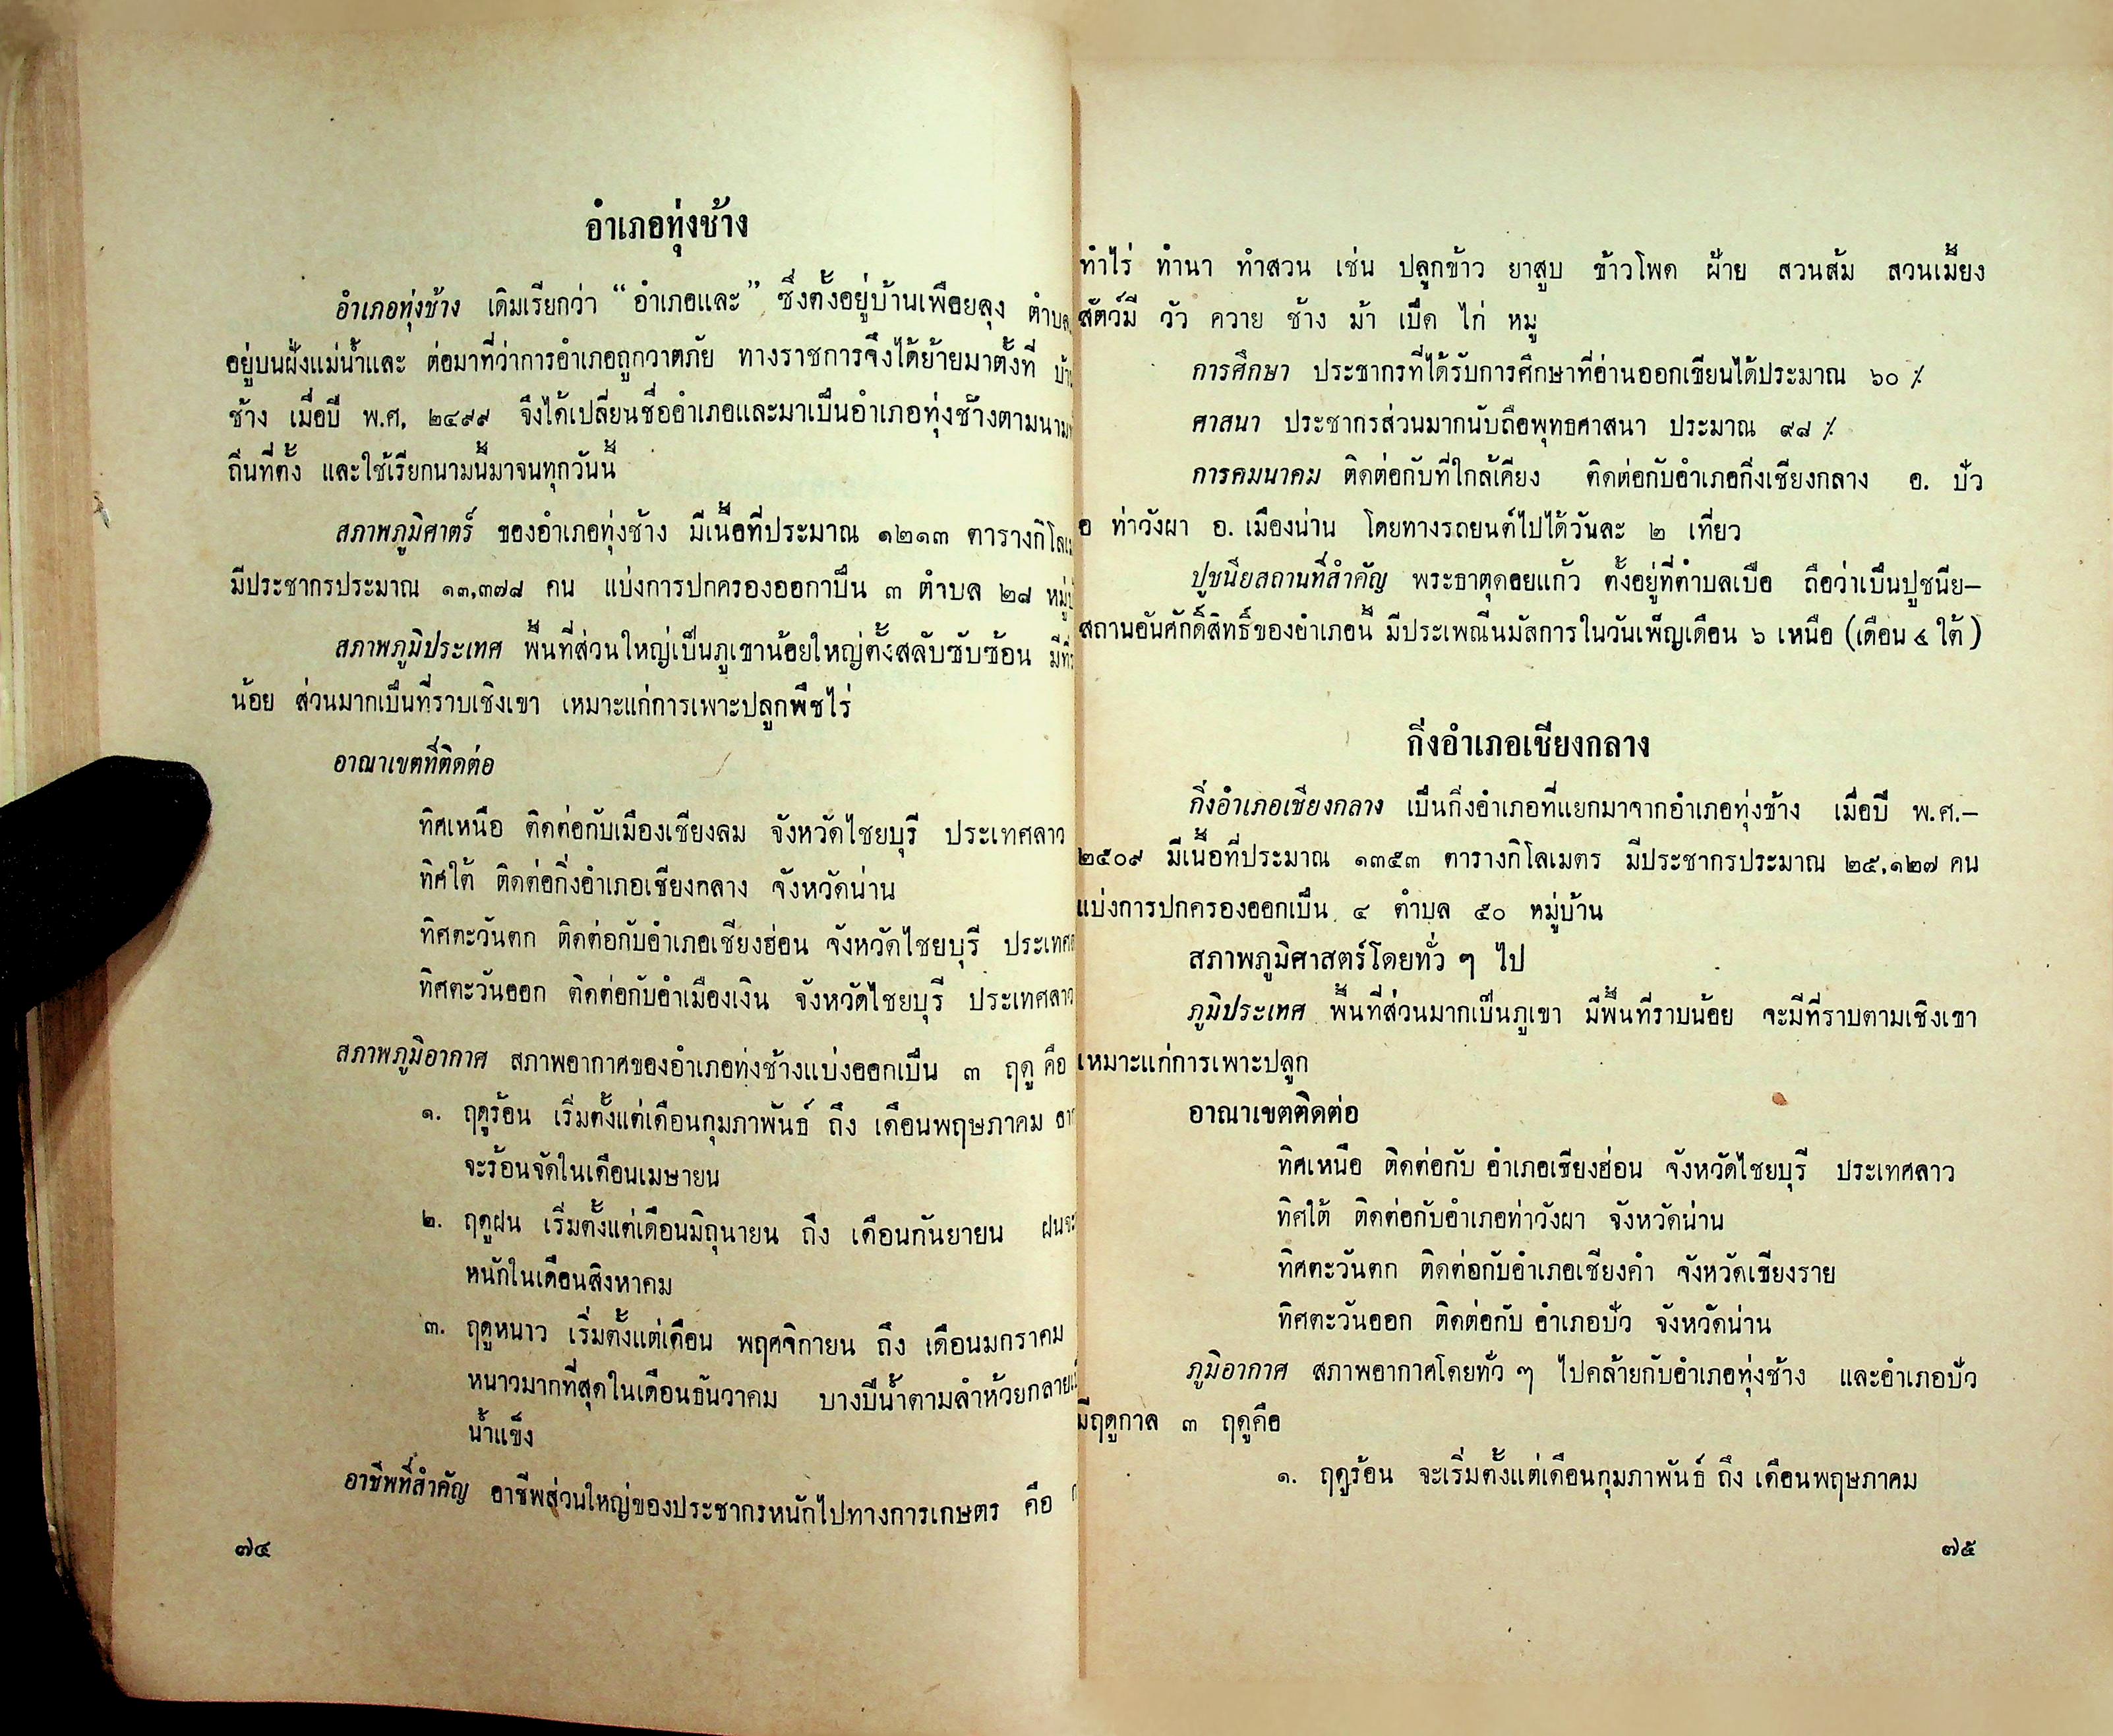 อำเภอทุ่งช้าง
อำเภอทุ่งช้าง เดิมเรียกว่า “อำเภอและ” ซึ่งตั้งอยู่บ้านเพือยลุง ตำบล
อยู่บนฝั่งแม่น้ำและ ต่อมาที่ว่าการอำเภอถูกวาตภัย ทางราชการจึงได้ย้ายมาตั้งที่
ช้าง เมื่อปี พ.ศ. ๒๔๙๙ จึงได้เปลี่ยนชื่ออำเภอและมาเป็นอำเภอทุ่งช้างตามนาม
ถิ่นที่ตั้ง และใช้เรียกนามนี้มาจนทุกวันนี้
สภาพภูมิศาตร์ ของอำเภอทุ่งช้าง มีเนื้อที่ประมาณ ๑๒๑๓ ตารางกิโล
มีประชากรประมาณ ๑๓,๓๗๘ คน แบ่งการปกครองออกาป็น ๓ ตำบล ๒๘ หมู่
สภาพภูมิประเทศ พื้นที่ส่วนใหญ่เป็นภูเขาน้อยใหญ่ตั้งสลับซับซ้อน มีที่
น้อย ส่วนมากเป็นที่ราบเชิงเขา เหมาะแก่การเพาะปลูกพืชไร่
อาณาเขตที่ติดต่อ
ทิศเหนือ ติดต่อกับเมืองเชียงลม จังหวัดไชยบุรี ประเทศลาว
ทิศใต้ ติดต่อกิ่งอำเภอเชียงกลาง จังหวัดน่าน
ทิศตะวันตก ติดต่อกับอำเภอเชียงฮ่อน จังหวัดไชยบุรี ประเทศ
ทิศตะวันออก ติดต่อกับอำเมืองเงิน จังหวัดไชยบุรี ประเทศลาว
สภาพภูมิอากาศ สภาพอากาศของอำเภอทุ่งช้างแบ่งออกเป็น ๓ ฤดู คือ
๑. ฤดูร้อน เริ่มตั้งแต่เดือนกุมภาพันธ์ ถึง เดือนพฤษภาคม
จะร้อนจัดในเดือนเมษายน
๒. ฤดูฝน เริ่มตั้งแต่เดือนมิถุนายน ถึง เดือนกันยายน ฝนจะ
หนักในเดือนสิงหาคม
๓. ฤดูหนาว เริ่มตั้งแต่เดือน พฤศจิกายน ถึง เดือนมกราคม
หนาวมากที่สุดในเดือนธันวาคม บางปีน้ำตามลำห้วยกลาย
น้ำแข็ง
อาชีพที่สำคัญ อาชีพส่วนใหญ่ของประชากรหนักไปทางการเกษตร คือ
๗๔
ทำไร่ ทำนา ทำสวน เช่น ปลูกข้าว ยาสูบ ข้าวโพด ฝ้าย สวนส้ม สวนเมี้ยง
สัตว์มี วัว ควาย ช้าง ม้า เป็ด ไก่ หมู
การศึกษา ประชากรที่ได้รับการศึกษาที่อ่านออกเขียนได้ประมาณ ๖๐ %
ศาสนา ประชากรส่วนมากนับถือพุทธศาสนา ประมาณ ๙๘ %
การคมนาคม ติดต่อกับที่ใกล้เคียง ติดต่อกับอำเภอกิ่งเชียงกลาง อ. ปัว
อ ท่าวังผา อ. เมืองน่าน โดยทางรถยนต์ไปได้วันละ ๒ เที่ยว
ปูชนียสถานที่สำคัญ พระธาตุดอยแก้ว ตั้งอยู่ที่ตำบลเปือ ถือว่าเป็นปูชนีย-
สถานอันศักดิ์สิทธิ์ของอำเภอนี้ มีประเพณีนมัสการในวันเพ็ญเดือน ๖ เหนือ (เดือน ๔ ใต้)
กิ่งอำเภอเชียงกลาง
กิ่งอำเภอเชียงกลาง เป็นกิ่งอำเภอที่แยกมาจากอำเภอทุ่งช้าง เมื่อปี พ.ศ.-
๒๕๐๙ มีเนื้อที่ประมาณ ๑๓๕๓ ตารางกิโลเมตร มีประชากรประมาณ ๒๕,๑๒๗ คน
แบ่งการปกครองออกเป็น ๔ ตำบล ๕๐ หมู่บ้าน
สภาพภูมิศาสตร์โดยทั่ว ๆ ไป
ภูมิประเทศ พื้นที่ส่วนมากเป็นภูเขา มีพื้นที่ราบน้อย จะมีที่ราบตามเชิงเขา
เหมาะแก่การเพาะปลูก
อาณาเขตติดต่อ
ทิศเหนือ ติดต่อกับ อำเภอเชียงฮ่อน จังหวัดไชยบุรี ประเทศลาว
ทิศใต้ ติดต่อกับอำเภอท่าวังผา จังหวัดน่าน
ทิศตะวันตก ติดต่อกับอำเภอเชียงคำ จังหวัดเชียงราย
ทิศตะวันออก ติดต่อกับ อำเภอปัว จังหวัดน่าน
ภูมิอากาศ สภาพอากาศโดยทั่ว ๆ ไปคล้ายกับอำเภอทุ่งช้าง และอำเภอปัว
มีฤดูกาล ๓ ฤดูคือ
๑. ฤดูร้อน จะเริ่มตั้งแต่เดือนกุมภาพันธ์ ถึง เดือนพฤษภาคม
๗๕